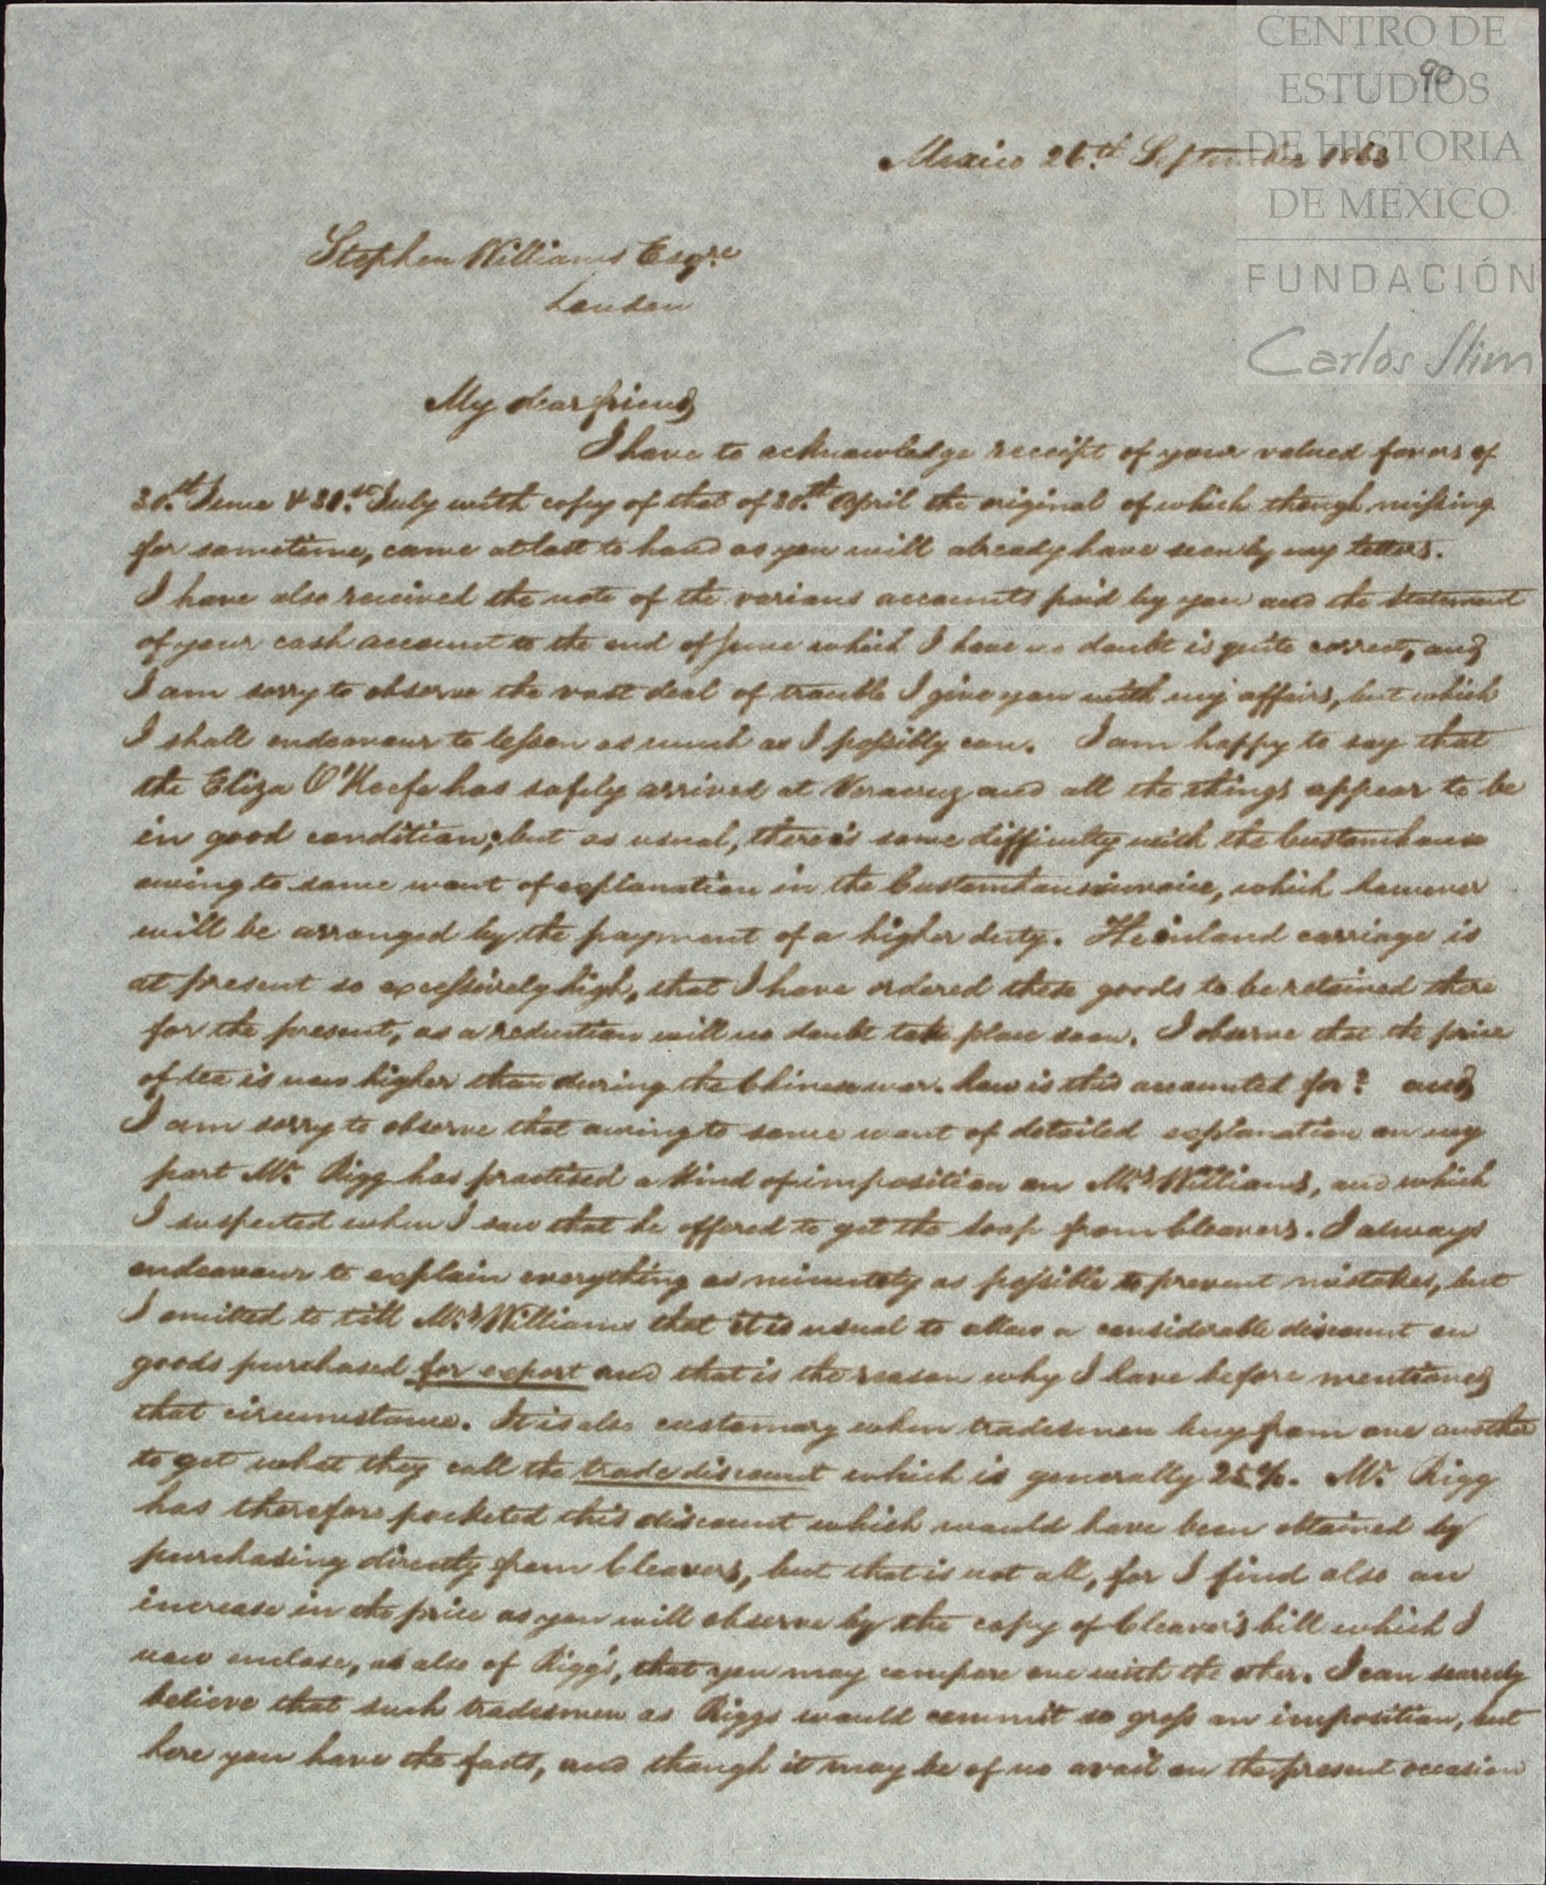 CENTRO DE
ESTUDIOS
DE HISTORIA
DE MEXICO
FUNDACIÓN
Carlos Slim
90
Mexico 26th September 186
Stephen Williams Esqre
London
My dear friend
I have to acknowledge receipt of your valued favors of
30th June & 31st July with copy of that of 30th April the original of which though missing
for sometime, came at last to hand as you will already have seen by my letters.
I have also received the note of the various accounts paid by you and the statement
of your cash account to the end of June which I have no doubt is quite correct, and
I am sorry to observe the vast deal of trouble I give you with my affairs, but which
I shall endeavour to lessen as much as I possibly can. I am happy to say that
the Eliza O'Keefe has safely arrived at Veracruz and all the things appear to be
in good condition; but as usual, there is some difficulty with the Customhouse
owing to some want of explanation in the Customhouse invoice, which however
will be arranged by the payment of a higher duty. The inland carriage is
at present so excessively high, that I have ordered these goods to be retained there
for the present, as a reduction will no doubt take place soon. I observe that the price
of tea is now higher than during the Chinese war. how is this accounted for? and
I am sorry to observe that owing to some want of detailed explanation on my
part Mr. Rigg has practised a kind of imposition on Mrs Williams, and which
I suspected when I saw that he offered to get the soap from Cleavers. I always
endeavour to explain everything as minutely as possible to prevent mistakes, but
I omitted to tell Mrs Williams that it is usual to allow a considerable discount on
goods purchased for export and that is the reason why I have before mentioned
that circumstance. It is also customary when tradesmen buy from one another
to get what they call the trade discount which is generally 25%. Mr. Rigg
has therefore pocketed this discount which would have been obtained by
purchasing directly from Cleavers, but that is not all, for I find also an
increase in the price as you will observe by the copy of Cleaver's bill which I
now enclose, as also of Rigg's, that you may compare one with the other. I can scarcely
believe that such tradesmen as Riggs would commit so gross an imposition, but
here you have the facts, and though it may be of no avail on the present occasion